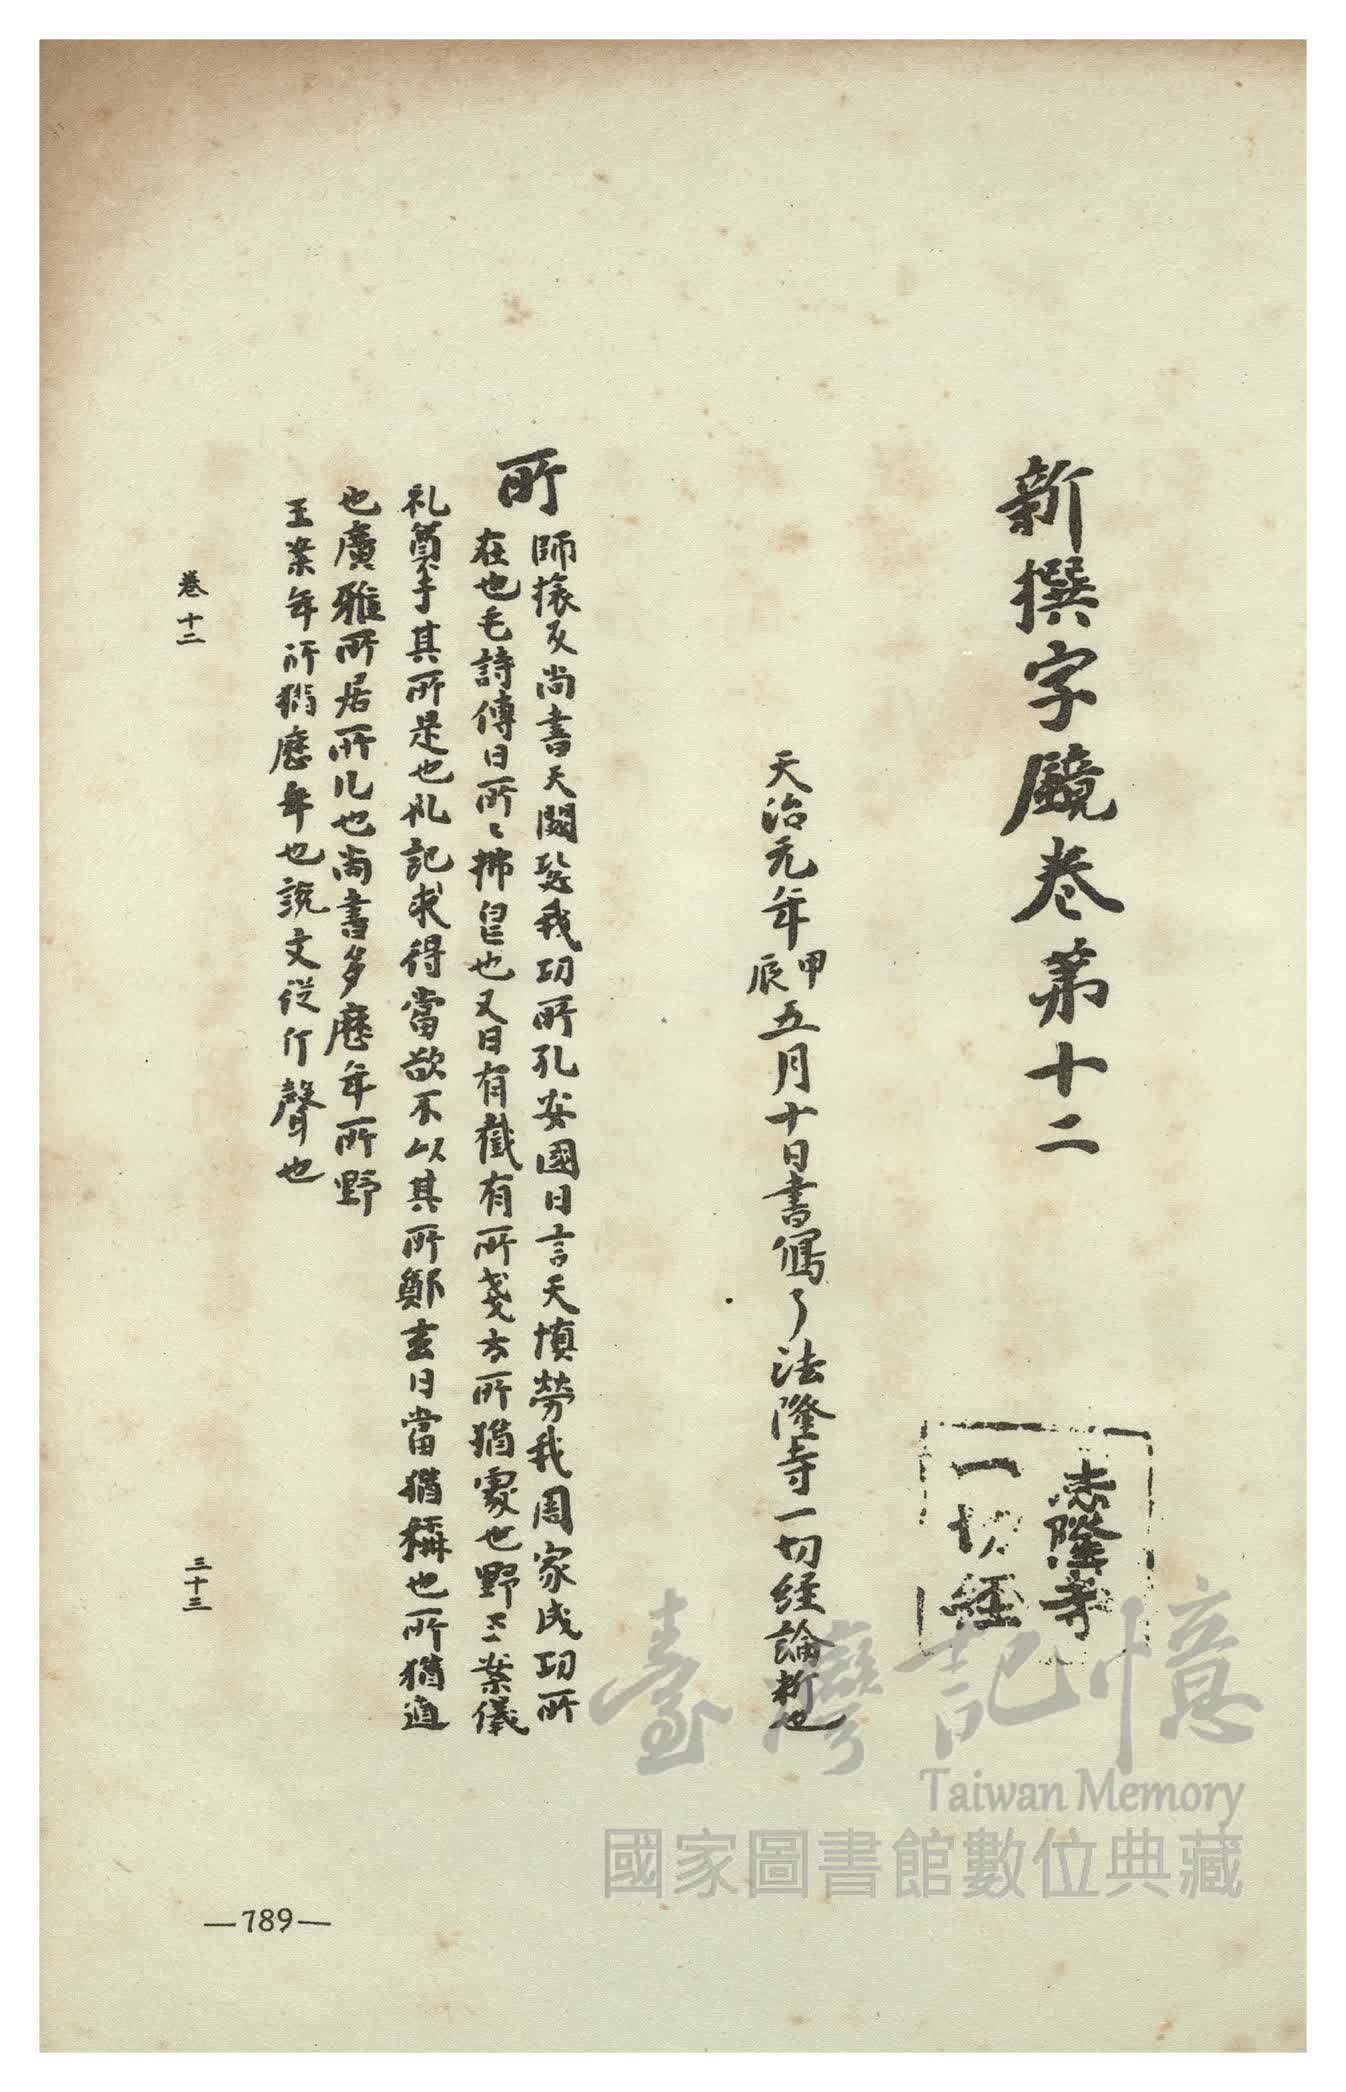 新撰字鏡巻第十二
法隆寺
一切經
天治元年甲辰五月十日書寫了法隆寺一切経論析也
所
師掾反尚書天閟毖我功所孔安國曰言天慎勞我周家成功所
在也毛詩傳曰所〻柿皃也又曰有截有所戔方所猶處也野王案儀
礼奠于其所是也礼記求得當欲不以其所鄭玄曰當猶稱也所猶道
也廣雅所居所几也尚書多歷年所野
王案年所猶歷年也說文從斤聲也
卷十二
三十三
—789—
臺灣記憶
Taiwan Memory
國家圖書館數位典藏